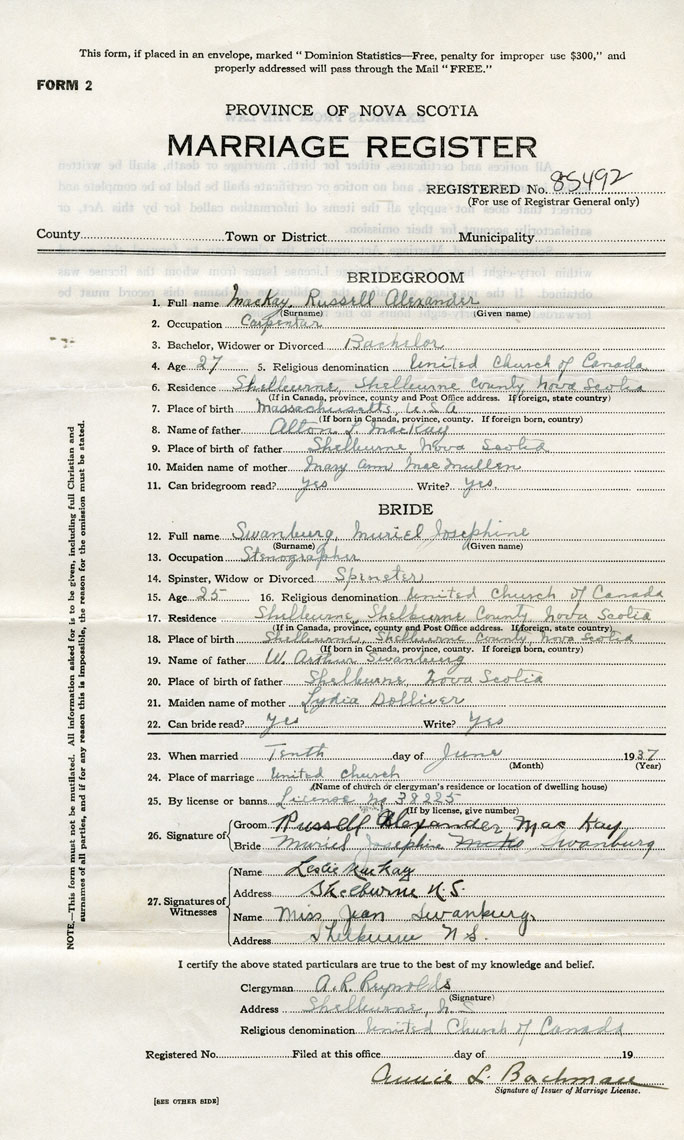 This form, if placed in an envelope, marked "Dominion Statistics—Free, penalty for improper use $300," and
properly addressed will pass through the Mail "FREE."
FORM 2
PROVINCE OF NOVA SCOTIA
MARRIAGE REGISTER
REGISTERED No. 85492
(For use of Registrar General only)
County Town or District Municipality
BRIDEGROOM
1. Full name MacKay, Russell Alexander
(Surname) (Given name)
2. Occupation Carpentar
3. Bachelor, Widower or Divorced Bachelor
4. Age 27 5. Religious denomination United Church of Canada
6. Residence Shelburne, Shelburne County Nova Scotia
(If in Canada, province, county and Post Office address. If foreign, state country)
7. Place of birth Massachusetts, U.S.A
(If born in Canada, province, county. If foreign born, country)
8. Name of father Alton L. MacKay
9. Place of birth of father Shelburne Nova Scotia
10. Maiden name of mother Mary Ann MacMullen
11. Can bridegroom read? yes Write? yes.
BRIDE
12. Full name Swanburg, Muriel Josephine
(Surname) (Given name)
13. Occupation Stenographer
14. Spinster, Widow or Divorced Spinster
15. Age 25 16. Religious denomination United Church of Canada
17. Residence Shelburne, Shelburne County Nova Scotia
(If in Canada, province, county and Post Office address. If foreign, state country)
18. Place of birth Shelburne, Shelburne County Nova Scotia
(If born in Canada, province, county. If foreign born, country)
19. Name of father W. Arthur Swanburg
20. Place of birth of father Shelburne, Nova Scotia
21. Maiden name of mother Lydia Dolliver
22. Can bride read? yes Write? yes
23. When married Tenth day of June 1937
(Month) (Year)
24. Place of marriage United Church
(Name of church or clergyman's residence or location of dwelling house)
25. By license or banns License No 38225
(If by license, give number)
26. Signature of Groom Russell Alexander MacKay
Bride Muriel Josephine Swanburg
27. Signatures of Witnesses Name Leslie MacKay
Address Shelburne N.S.
Name Miss Jean Swanburg
Address Shelburne N.S.
I certify the above stated particulars are true to the best of my knowledge and belief.
Clergyman A. R. Reynolds
(Signature)
Address Shelburne, N.S
Religious denomination United Church of Canada
Registered No. Filed at this office day of 19
Annie L. Bachman
Signature of Issuer of Marriage License.
[SEE OTHER SIDE]
NOTE.—This form must not be mutilated. All information asked for is to be given, including full Christian and
surnames of all parties, and if for any reason this is impossible, the reason for the omission must be stated.